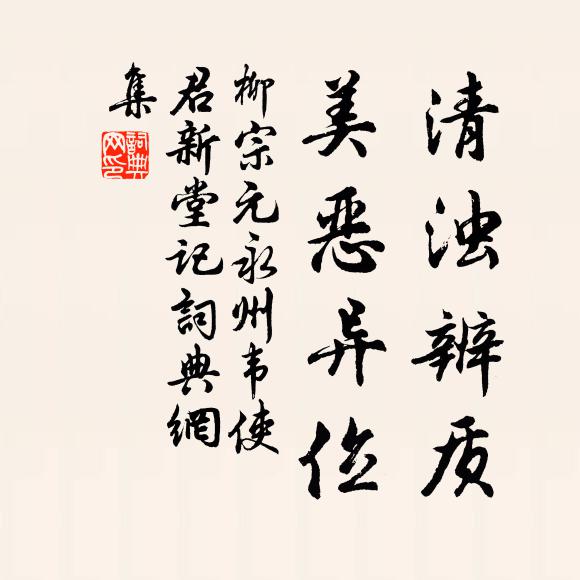 清浊辨质
美恶异位
柳宗元永州韦使
君新堂记詞典網
集
詞典
网印